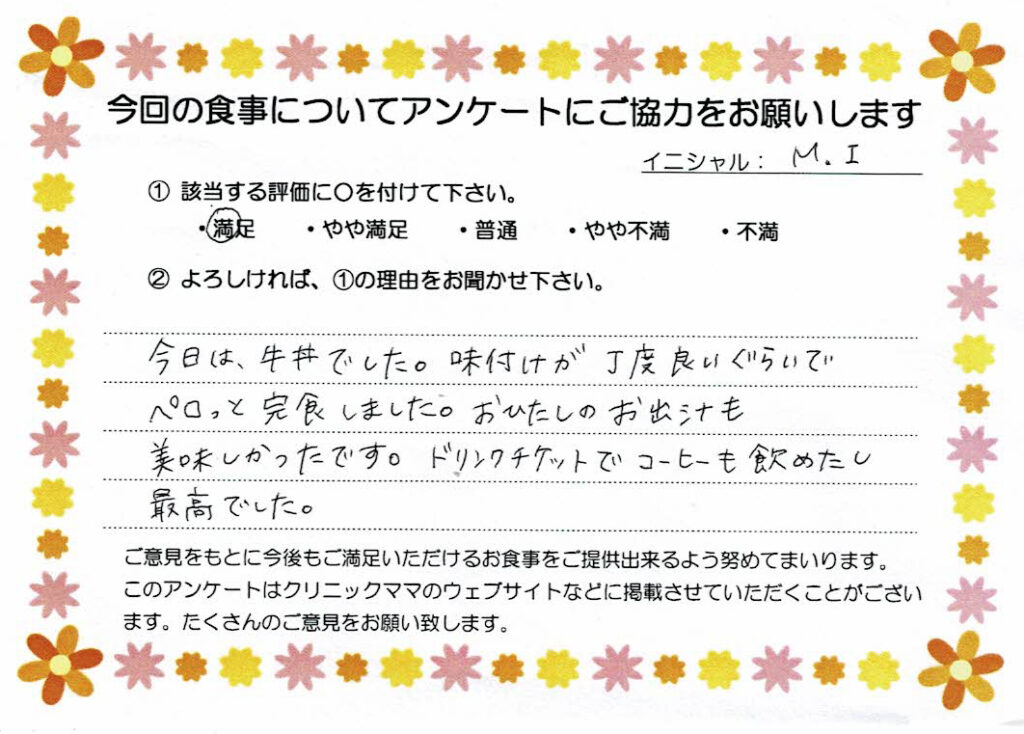 今回の食事についてアンケートにご協力をお願いします
イニシャル： M. I
① 該当する評価に〇を付けて下さい。
・満足 ・やや満足 ・普通 ・やや不満 ・不満
② よろしければ、①の理由をお聞かせ下さい。
今日は、牛丼でした。味付けが丁度良いぐらいで
ペロっと完食しました。おひたしのお出汁も
美味しかったです。ドリンクチケットでコーヒーも飲めたし
最高でした。
ご意見をもとに今後もご満足いただけるお食事をご提供出来るよう努めてまいります。
このアンケートはクリニックママのウェブサイトなどに掲載させていただくことがござい
ます。たくさんのご意見をお願い致します。